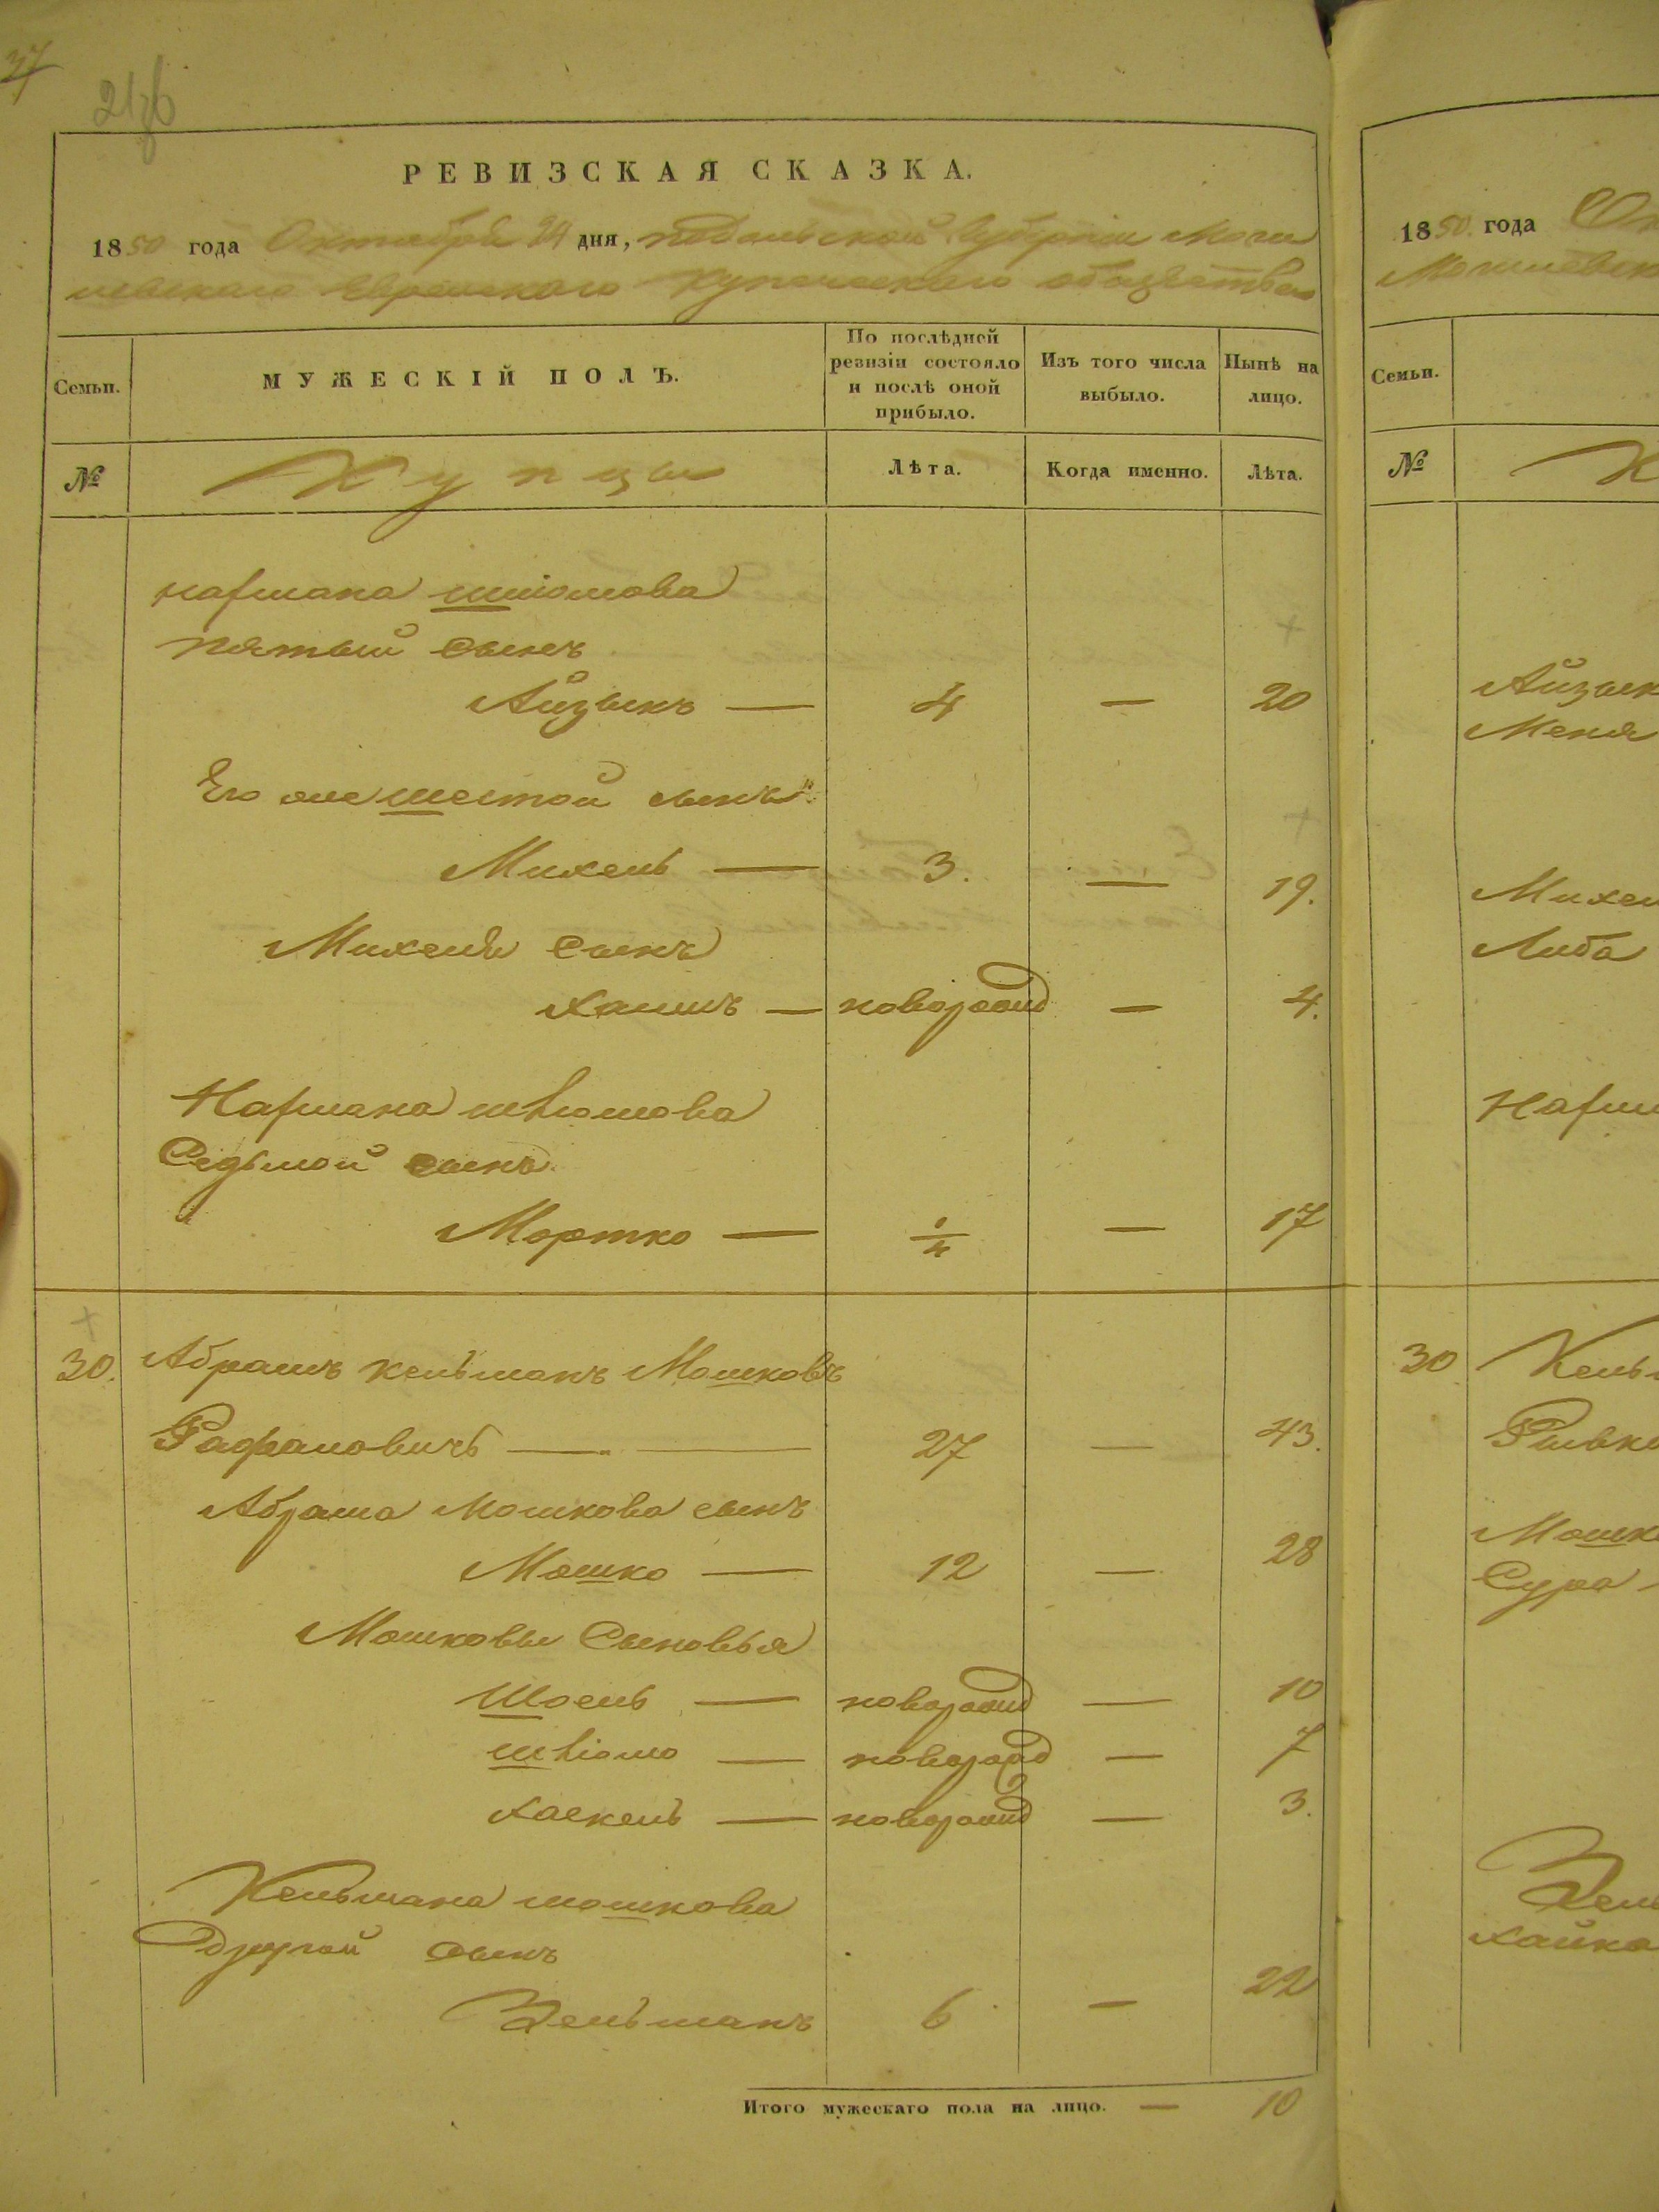 37
РЕВИЗСКАЯ СКАЗКА.
1850 года Октября 24 дня, подольской Губернии Моги
левскаго Еврейскаго купеческаго общества
Семьи.
МУЖЕСКІЙ ПОЛЪ.
По послѣдней ревизіи состояло и послѣ оной прибыло.
Изъ того числа выбыло.
Нынѣ на лицо.
№ Купцы Лѣта. Когда именно. Лѣта.
Нафмана шліомова
пятый сынъ
Айзыкъ — 4 — 20
Его же шестой сынъ
Михель — 3. — 19.
Михеля сынъ
Хаимъ — новорожд — 4.
Нафмана шліомова
Седьмой сынъ
Мортко — — 17
30. Абрамъ Кельманъ Мошковъ
— 27 — 43.
Абрама Мошкова сынъ
Мошко — 12 — 28
Мошковы Сыновья
Шоель — новорожд — 10
шліомо — новорожд — 7
Хаскель — новорожд — 3.
Кельмана мошкова
другой сынъ
Зельманъ 6 — 22
Итого мужескаго пола на лицо. — 10
1850 года
Семьи.
№
Айзык
Меня
Михел
Либа
Нафм
30 Кельм
Ривк
Мошк
Сура
Зель
Хайка